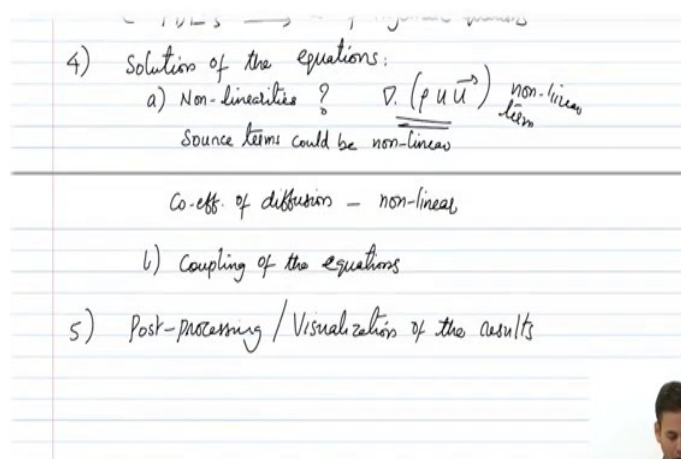 4) Solution of the equations:
a) Non-linearities ? ∇. (ρ u u⃗) non-linear term
Source terms could be non-linear
Co-eff. of diffusion – non-linear
b) Coupling of the equations
5) Post-processing / Visualization of the results